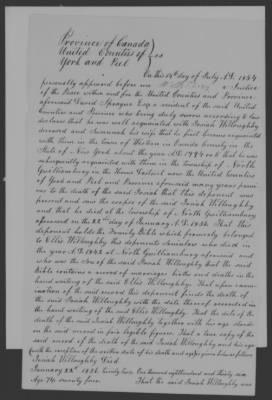 Province of Canada
United Counties of } ss
York and Peel
On this 14th day of July A.D. 1854
personally appeared before me a Justice
of the Peace within and for the United Counties and Province
aforesaid David Sprague Esq a resident of the said United
Counties and Province who being duly sworn according to law
declares that he was well acquainted with Josiah Willoughby
deceased and Susannah his wife that he first became acquainted
with them in the town of in County in the
State of New York about the year A.D. 1794 that he was
subsequently acquainted with them in the Township of North
Gwillimbury in the Home District now the United Counties
of York and Peel and Province aforesaid many years previous
to the death of the said Josiah that this deponent was
present and saw the corpse of the said Josiah Willoughby
and that he died at the township of North Gwillimbury
aforesaid on the 22nd day of January A.D. 1836. That this
deponent holds the Family Bible which formerly belonged
to Ellis Willoughby this deponents who died in
the year A.D. 1842 at North Gwillimbury aforesaid and
who was the Son of the said Josiah Willoughby that the said
Bible contains a record of marriages births and deaths in the
hand writing of the said Ellis Willoughby. That upon exami-
nation of the said record this deponent finds the death of
the said Josiah Willoughby with the date thereof recorded in
the hand writing of the said Ellis Willoughby. That the date of the
death of the said Josiah Willoughby together with his age stands
on the said record in fair legible figures. That a true copy of the
said record of the death of the said Josiah Willoughby and his age
with the exception of the written date of his death and age is given here as follows
Josiah Willoughby Died
January 22d 1836 twenty two, One thousand eighthundred and thirty six
Age 74 seventy four. That the said Josiah Willoughby was